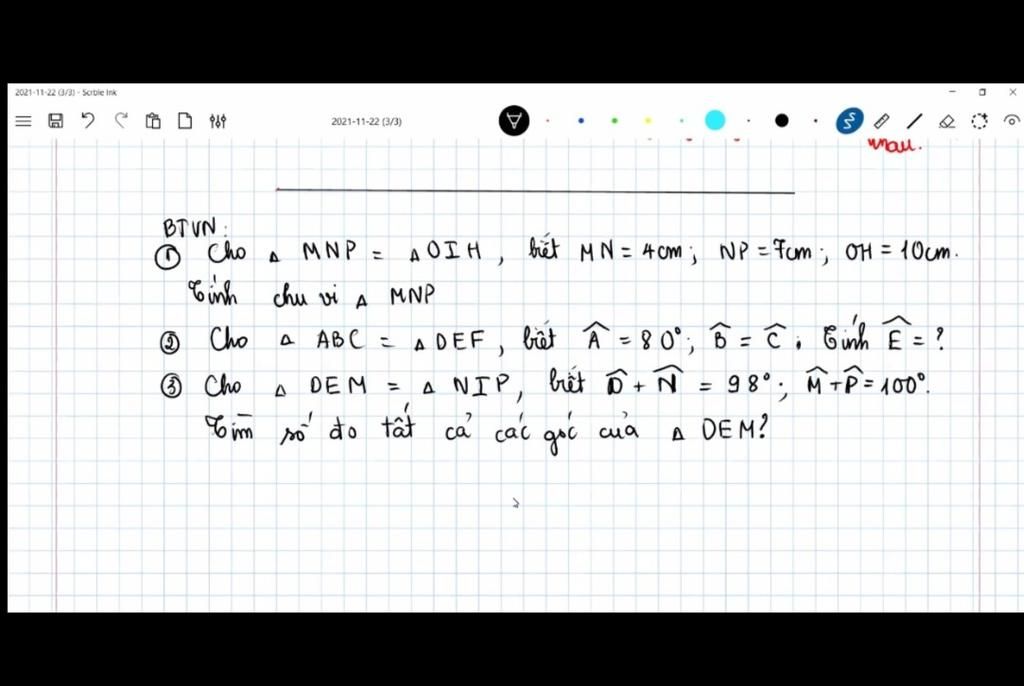 2021-11-22 (3/3) - Scrble Ink
2021-11-22 (3/3)
nhau.
BTVN:
① Cho △ MNP = △ OIH, biết MN = 4cm; NP = 7cm; OH = 10cm.
Tính chu vi △ MNP
② Cho △ ABC = △ DEF, biết Â = 80°; B̂ = Ĉ. Tính Ê = ?
③ Cho △ DEM = △ NIP, biết D̂ + N̂ = 98°; M̂ + P̂ = 100°.
Tìm số đo tất cả các góc của △ DEM?